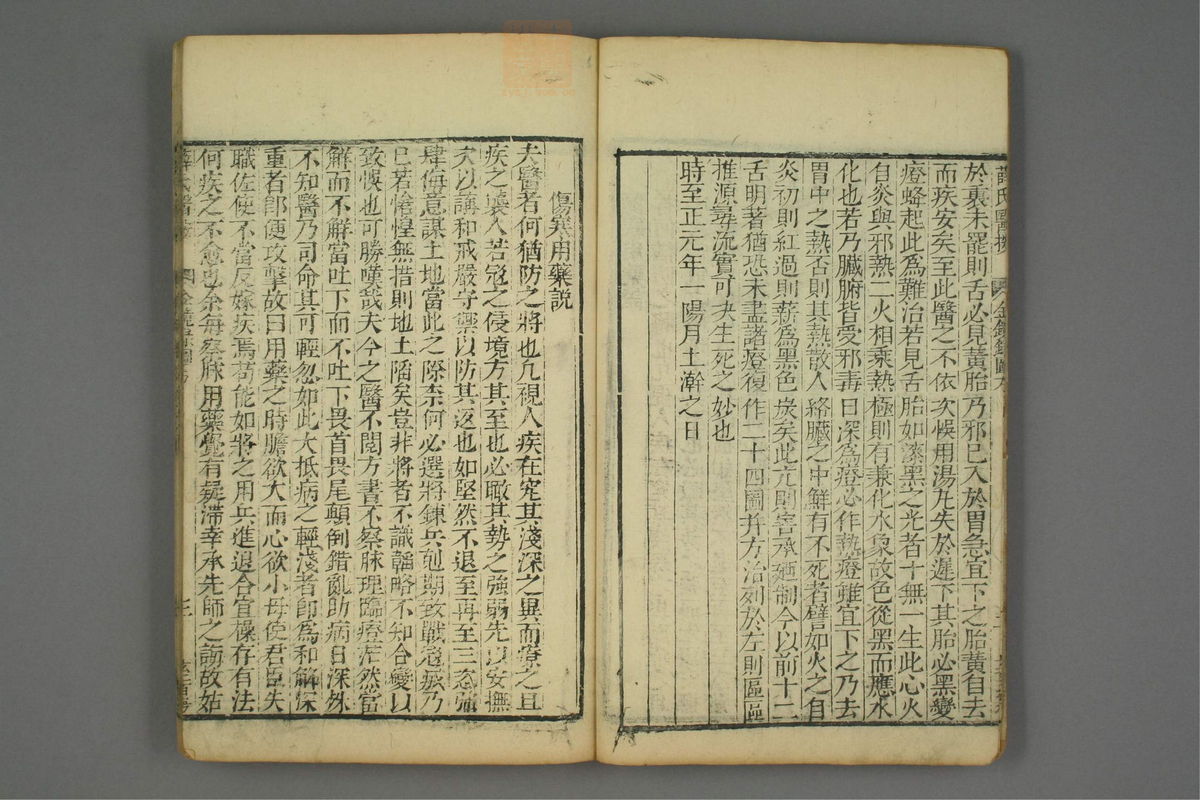 薛氏醫按
金鏡錄
於裏未罷則舌必見黃胎乃邪已入於胃急宜下之胎黃自去
而疾安矣至此醫之不依次候用湯丸失於遲下其胎必黑變
證蜂起此為難治若見舌胎如漆黑之光者十無一生此心火
自炎與邪熱二火相乘熱極則有兼化水象故色從黑而應水
化也若乃臟腑皆受邪毒日深為證必作熱證雖宜下之乃去
胃中之熱否則其熱散入絡臟之中鮮有不死者譬如火之自
炎初則紅過則薪為黑色炭矣此亢則害承廼制今以前十二
舌明著猶恐未盡諸證復作二十四圖并方治列於左則區區
推源尋流實可決生死之妙也
時至正元年一陽月上澣之日
傷寒用藥說
夫醫者何猶防之將也凡視人疾在究其淺深之異而療之且
疾之襲人若冦之侵境方其至也必瞰其勢之強弱先以安撫
次以講和戒嚴守禦以防其返也如堅然不退至再至三恣彌
肆侮意謀土地當此之際柰何必選將錬兵刻期致戰冦敗乃
已若惶惶無措則地土陷矣豈非將者不識韜略不知合變以
致悞也可勝嘆哉夫今之醫不閱方書不察脉理臨療茫然當
解而不解當吐下而不吐下畏首畏尾顛倒錯亂助病日深殊
不知醫乃司命其可輕忽如此大抵病之輕淺者即為和解深
重者即便攻擊故曰用藥之時膽欲大而心欲小毋使君臣失
職佐使不當反嫁疾焉苟能如將之用兵進退合宜操存有法
何疾之不愈也余每察脉用藥覺有疑滯幸承先師之誨故姑
薛氏醫按